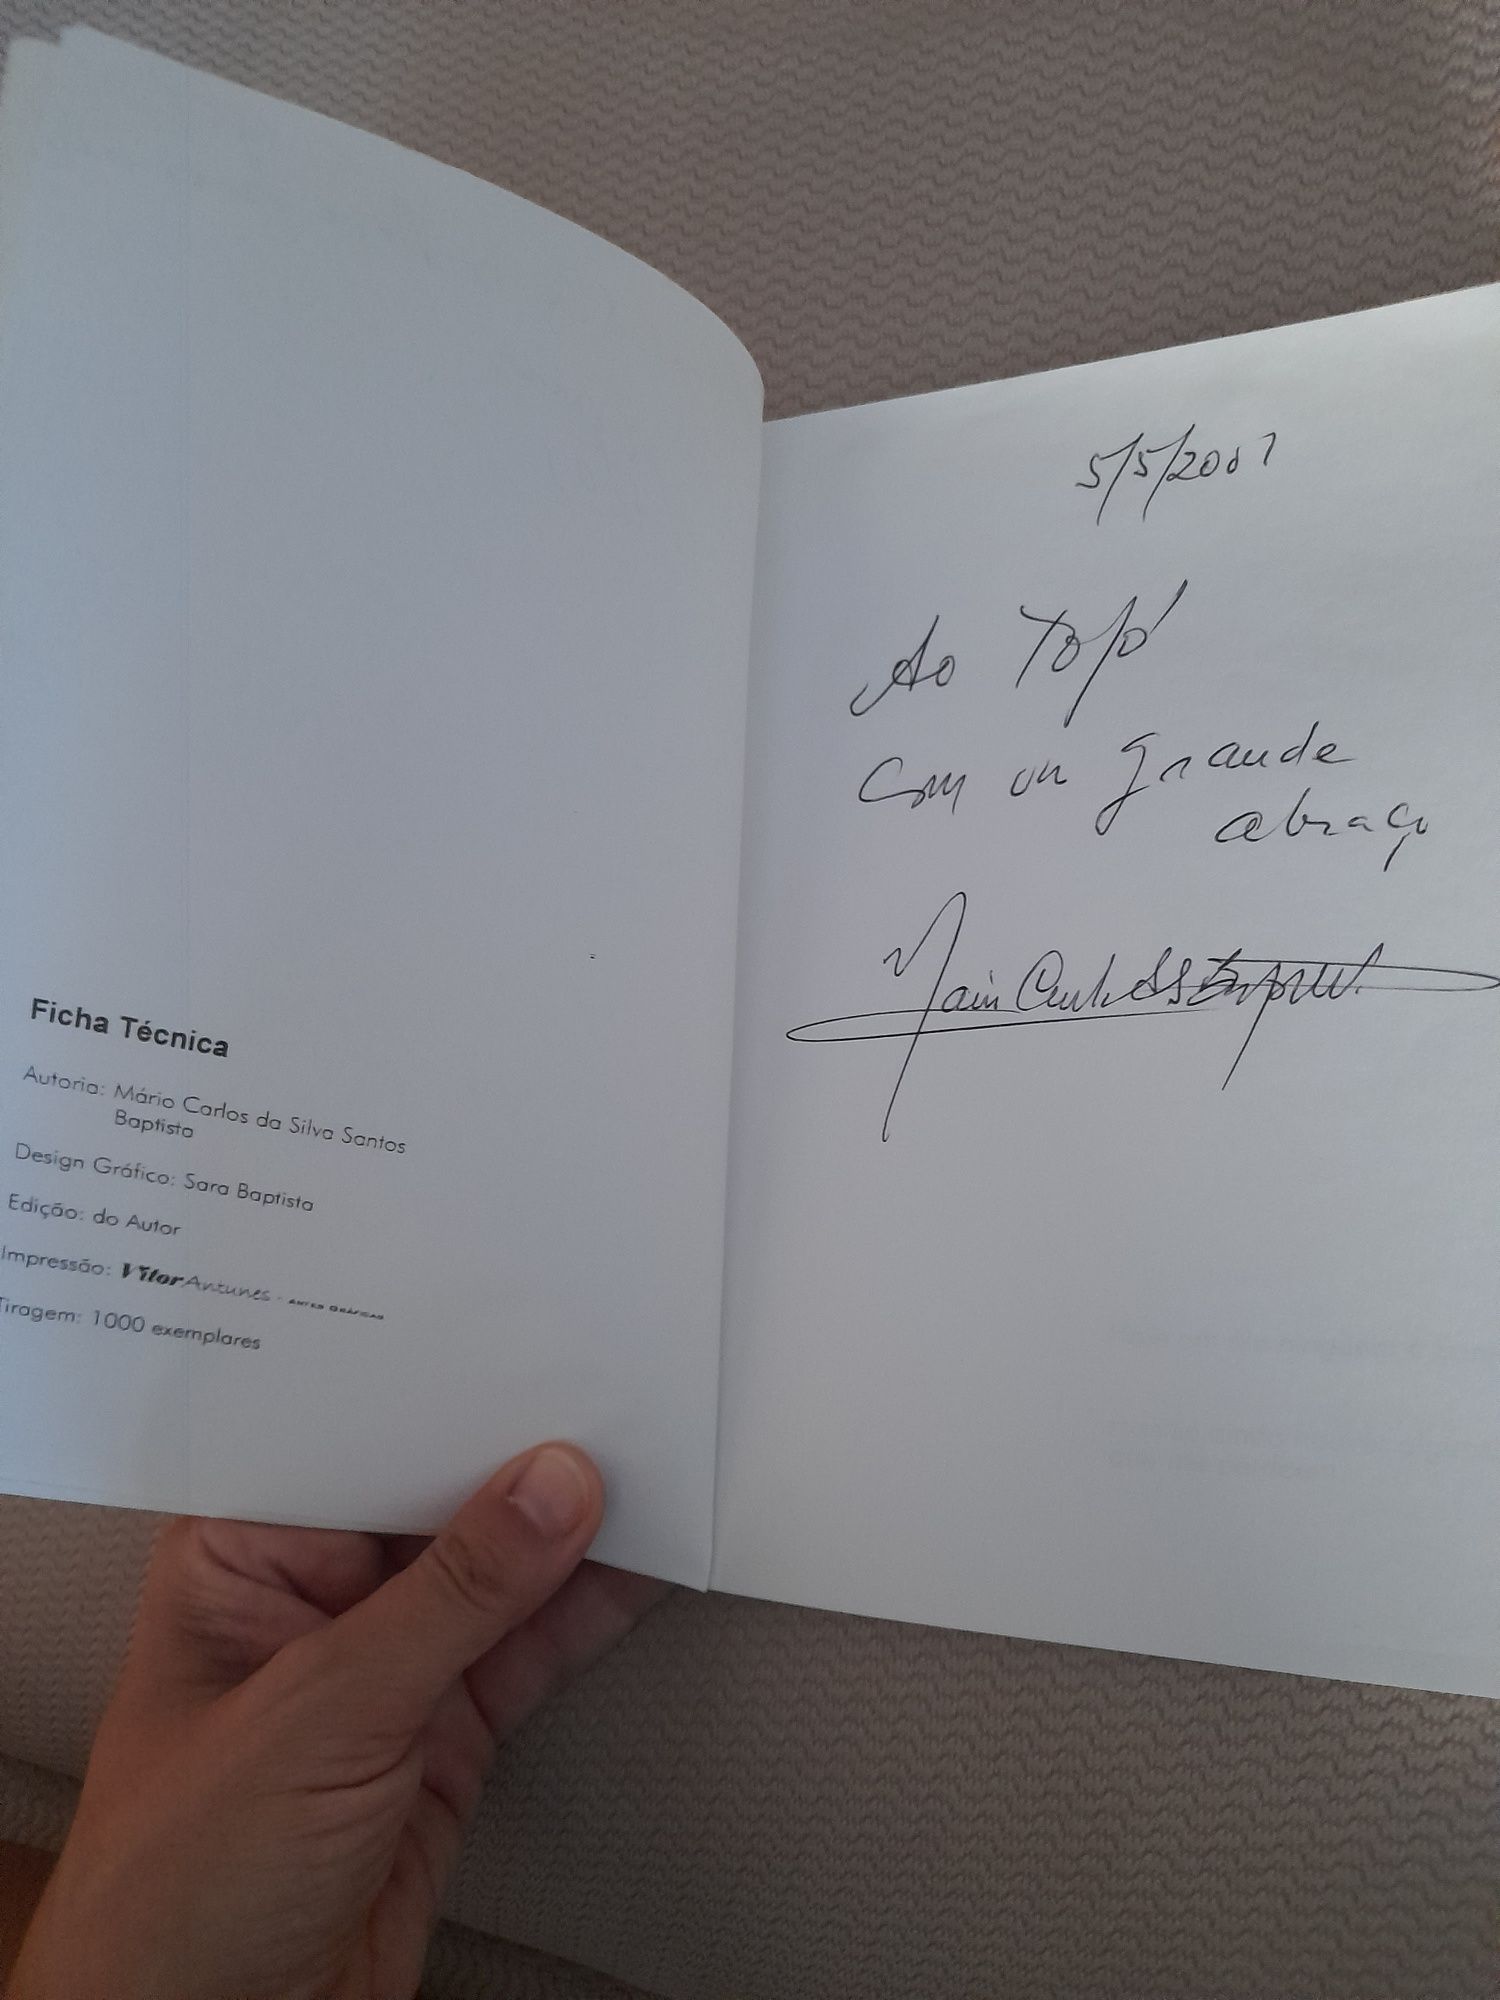 Ficha Técnica
Autoria: Mário Carlos da Silva Santos
Baptista
Design Gráfico: Sara Baptista
Edição: do Autor
Impressão: Vitor Antunes - ARTES GRÁFICAS
Tiragem: 1000 exemplares
5/5/2007
Ao Topó
Com um grande
abraço